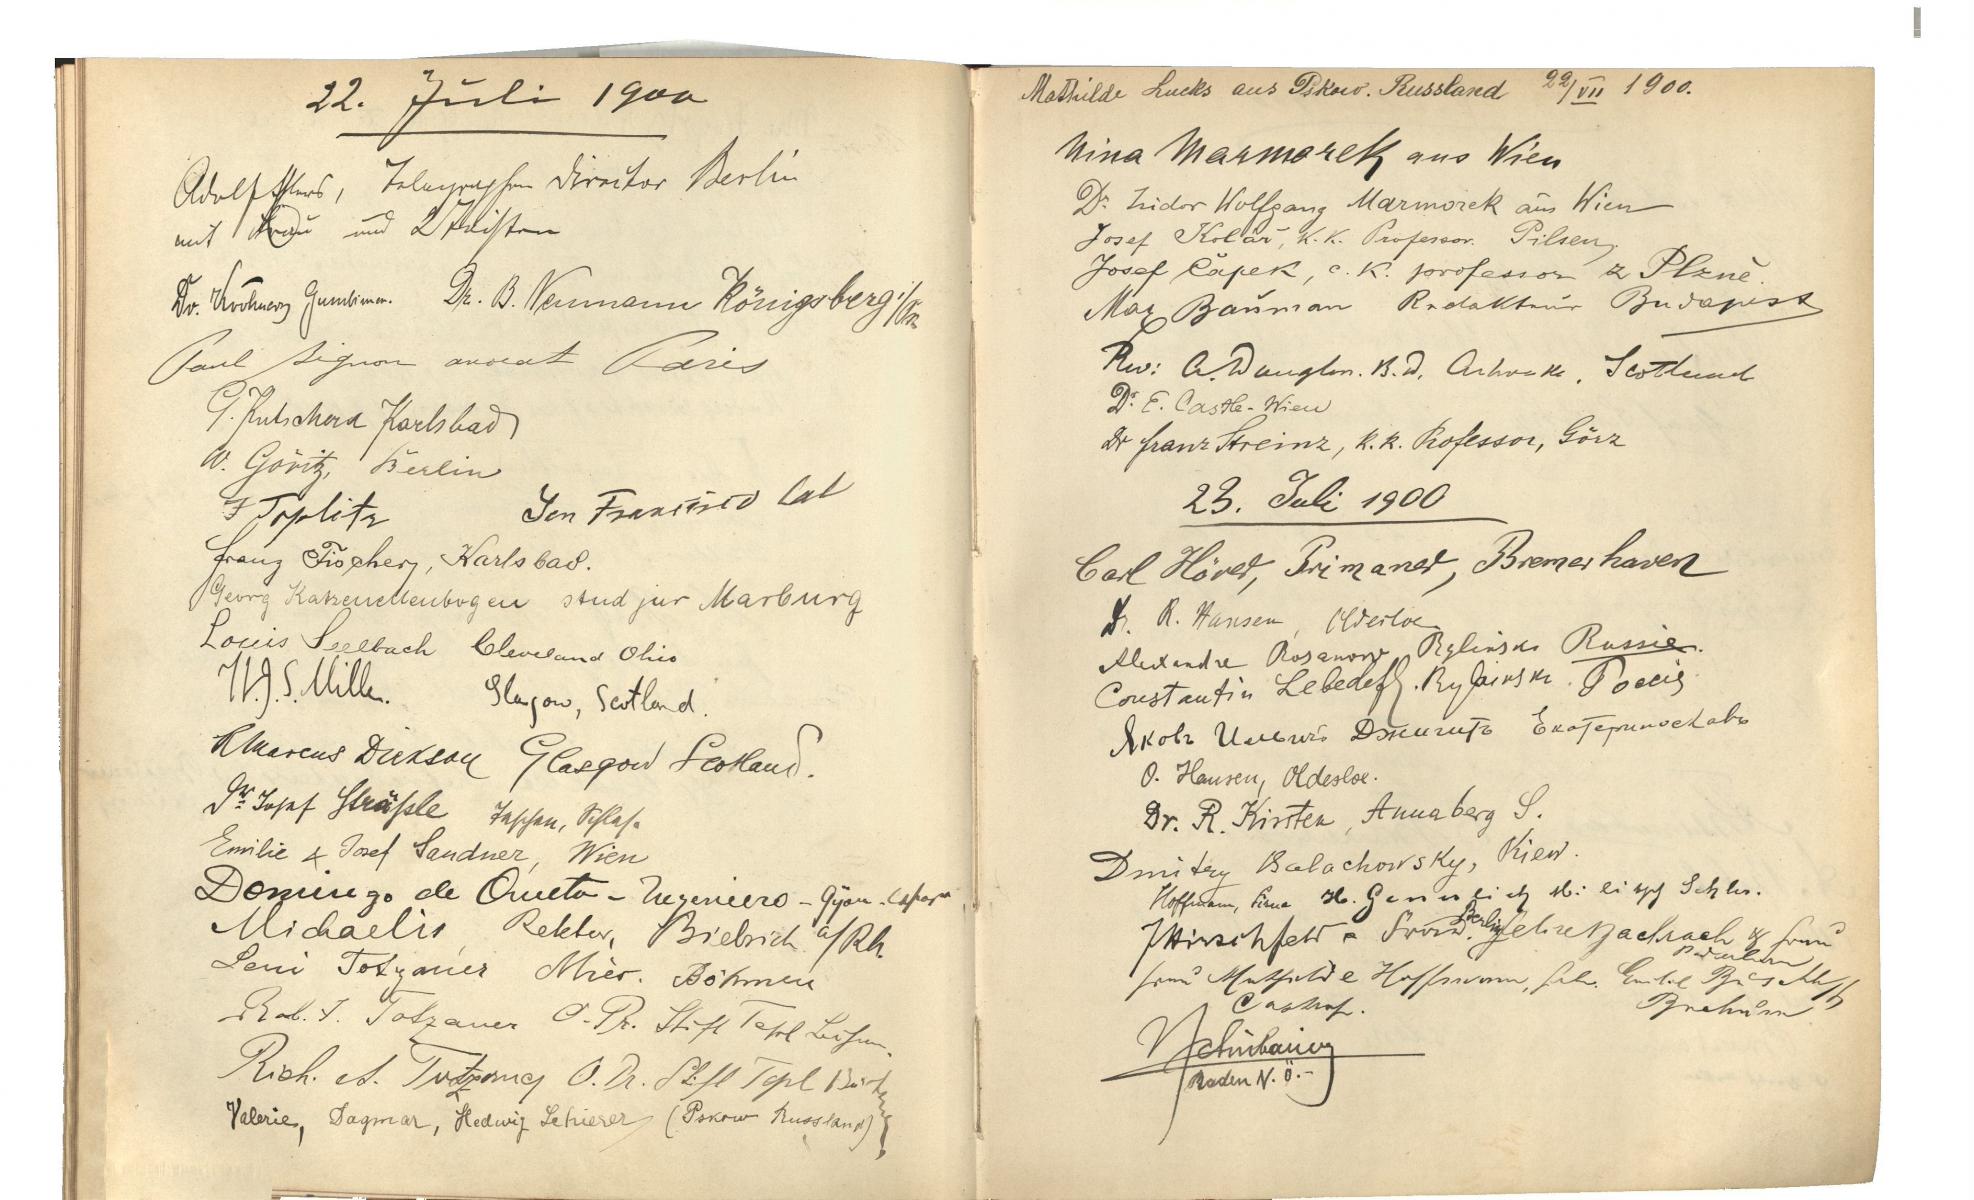 22. Juli 1900
Adolf, Telegraphen Director Berlin
mit Frau und 2
Dr. Gumbinnen. Dr. B. Neumann Königsberg i/Pr
Paul Signon avocat Paris
G. Kutschera Karlsbad
W. Göritz, Berlin
F Toplitz San Francisco Cal
Franz Fischer, Karlsbad.
Georg Katzenellenbogen stud jur Marburg
Louis Seelbach Cleveland Ohio
W.J.S. Miller. Glasgow, Scotland.
R Marcus Dickson Glasgow Scotland.
Dr. Josef Sträßle
Emilie & Josef Sandner, Wien
Domingo de Orueta - Ingeniero - Gijon - España
Michaelis, Rektor, Biebrich a/Rh.
Leni Totzauer Mies. Böhmen
Rob. F. Totzauer O. Pr. Stift Tepl Böhm.
Rich. A. Totzauer O. Pr. Stift Tepl Böhmen
Valerie, Dagmar, Hedwig Schierer (Pskow Russland)
Mathilde Lucks aus Pskow. Russland 22/VII 1900.
Nina Marmorek aus Wien
Dr. Isidor Wolfgang Marmorek aus Wien
Josef Kolář, k. k. Professor. Pilsen,
Josef Čapek, c. k. professor z Plzně.
Max Bauman Redakteur Budapest
Rev: A. Douglas. B.D. Scotland
Dr. E. Castle - Wien
Dr Franz Streinz, k. k. Professor, Görz
23. Juli 1900
Carl Höver, Primaner, Bremerhaven
Dr. R. Hansen, Oldesloe
Alexandre Rosanow Rylinsk Russie.
Constantin Lebedeff.
Яковъ Екатеринославъ
O. Hansen, Oldesloe.
Dr. R. Kirsten, Annaberg S.
Dmitry Balachowsky, Kiew.
Hoffmann, H.
J Hirschfeld Berlin & Frau
Frau Mathilde Hoffmann, Emilie
Castrop. Bochum
Baden N. Ö. -